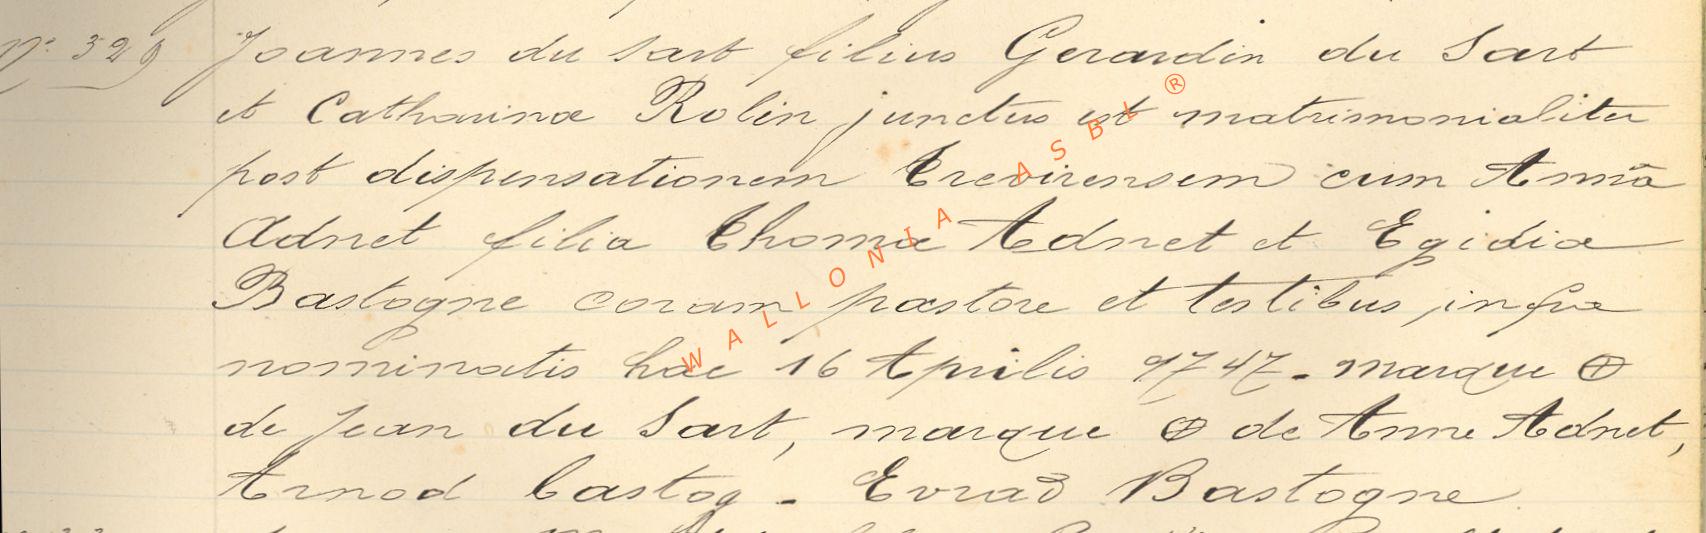 N° 329 Joannes du Sart filius Gerardin du Sart
et Catharinæ Rolin junctus est matrimonialiter
post dispensationem Trevirensem cum Annâ
Adnet filia Thomæ Adnet et Egidiæ
Bastogne coram pastore et testibus infra
nominatis hac 16 Aprilis 1747 - marque ⊕
de Jean du Sart, marque ⊕ de Anne Adnet,
Arnod bastog - Evrad Bastogne
WALLONIA ASBL ®